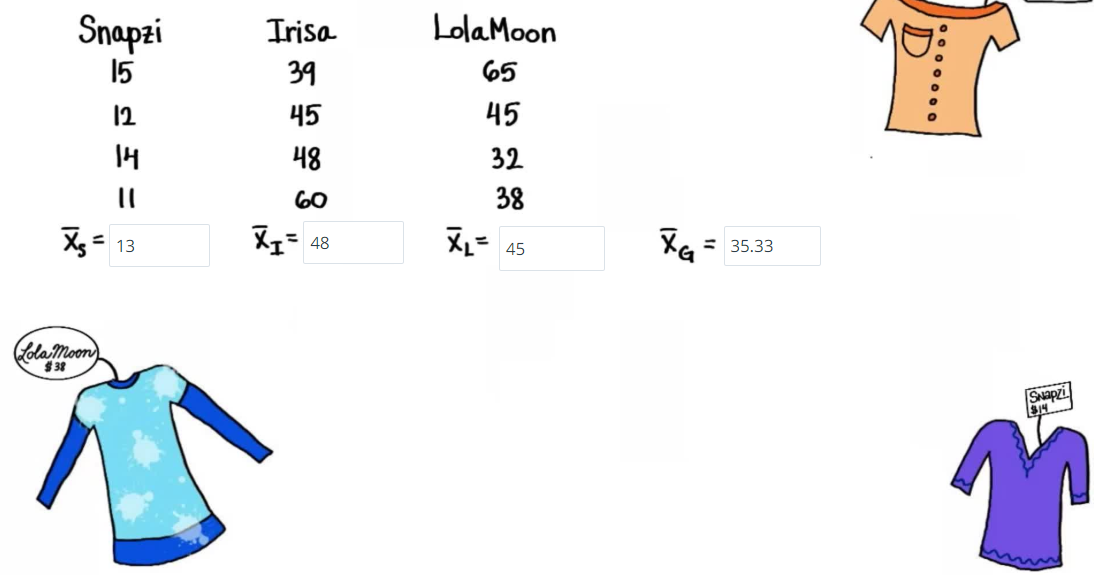 Snapzi Irisa LolaMoon
15 39 65
12 45 45
14 48 32
11 60 38
X̄S = 13 X̄I = 48 X̄L = 45 X̄G = 35.33
LolaMoon
$38
Snapzi
$14